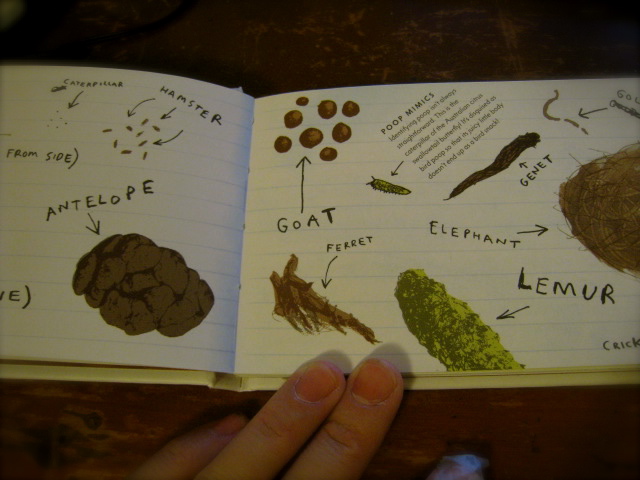 CATERPILLAR
HAMSTER
FROM SIDE)
ANTELOPE
VE)
GOAT
FERRET
POOP MIMICS
Identifying poop isn't always
straightforward. This is the
caterpillar of the Australian citrus
swallowtail butterfly! It's disguised as
bird poop so that its juicy little body
doesn't end up as a bird snack!
GENET
GOL
ELEPHANT
LEMUR
CRICK